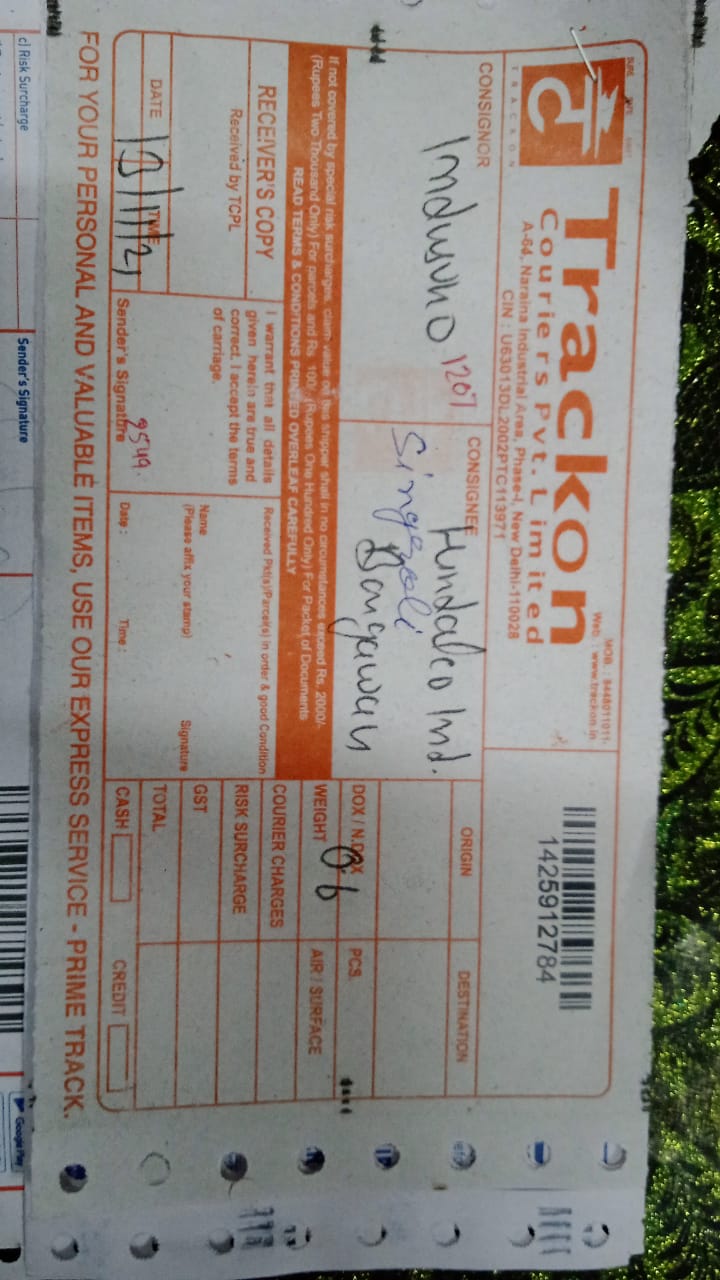 SURE SAFE SWIFT
TRACKON
Trackon
Couriers Pvt. Limited
A-64, Naraina Industrial Area, Phase-I, New Delhi-110028
CIN : U63013DL2002PTC113971
MOB.: 8448011011
Web : www.trackon.in
1425912784
CONSIGNOR
1207
CONSIGNEE
Hindalco Ind.
Singrauli
Bargawan
ORIGIN
DESTINATION
DOX / N.DOX
PCS.
WEIGHT
0.6
AIR / SURFACE
If not covered by special risk surcharges, claim value on this shipper shall in no circumstances exceed Rs. 2000/-
(Rupees Two Thousand Only) For parcels and Rs. 100/- (Rupees One Hundred Only) For Packet of Documents
READ TERMS & CONDITIONS PRINTED OVERLEAF CAREFULLY
RECEIVER'S COPY
Received by TCPL
DATE
TIME
13/11/21
I warrant that all details
given herein are true and
correct. I accept the terms
of carriage.
2549
Sender's Signature
Received Pkt(s)/Parcel(s) in order & good Condition
Name
(Please affix your stamp)
Signature
Date :
Time :
COURIER CHARGES
RISK SURCHARGE
GST
TOTAL
CASH
CREDIT
FOR YOUR PERSONAL AND VALUABLE ITEMS, USE OUR EXPRESS SERVICE - PRIME TRACK.
c) Risk Surcharge
Sender's Signature
Google Play